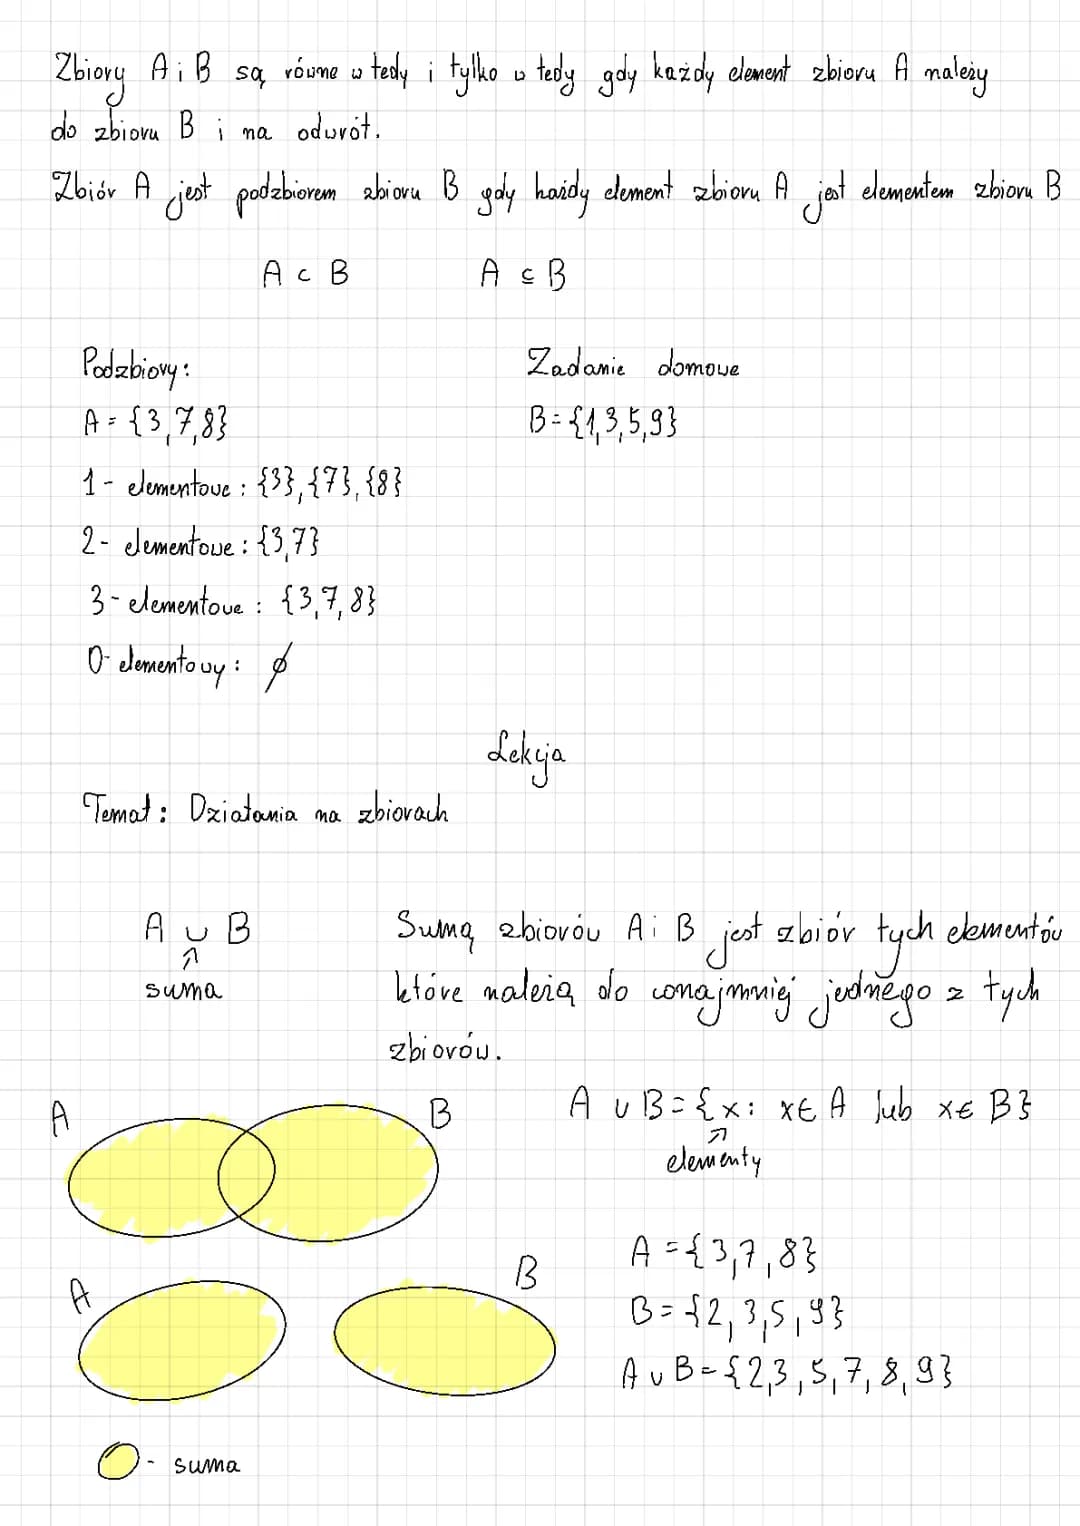 Zbiory A i B są równe w tedy i tylko w tedy gdy każdy element zbioru A należy
do zbioru B i na odwrót.
Zbiór A jest podzbiorem zbioru B gdy każdy element zbioru A jest elementem zbioru B
A ⊂ B A ⊆ B
Podzbiory:
A = {3,7,8}
1- elementowe : {3},{7},{8}
2- elementowe : {3,7}
3- elementowe : {3,7,8}
0- elementowy : ∅
Zadanie domowe
B = {1,3,5,9}
Lekcja
Temat : Działania na zbiorach
A ∪ B
↑
suma
Sumą zbiorów A i B jest zbiór tych elementów
które należą do conajmniej jednego z tych
zbiorów.
A B
A ∪ B = {x : x∈ A lub x∈ B}
↑
elementy
A B
A = {3,7,8}
B = {2,3,5,9}
A ∪ B = {2,3,5,7,8,9}
- suma